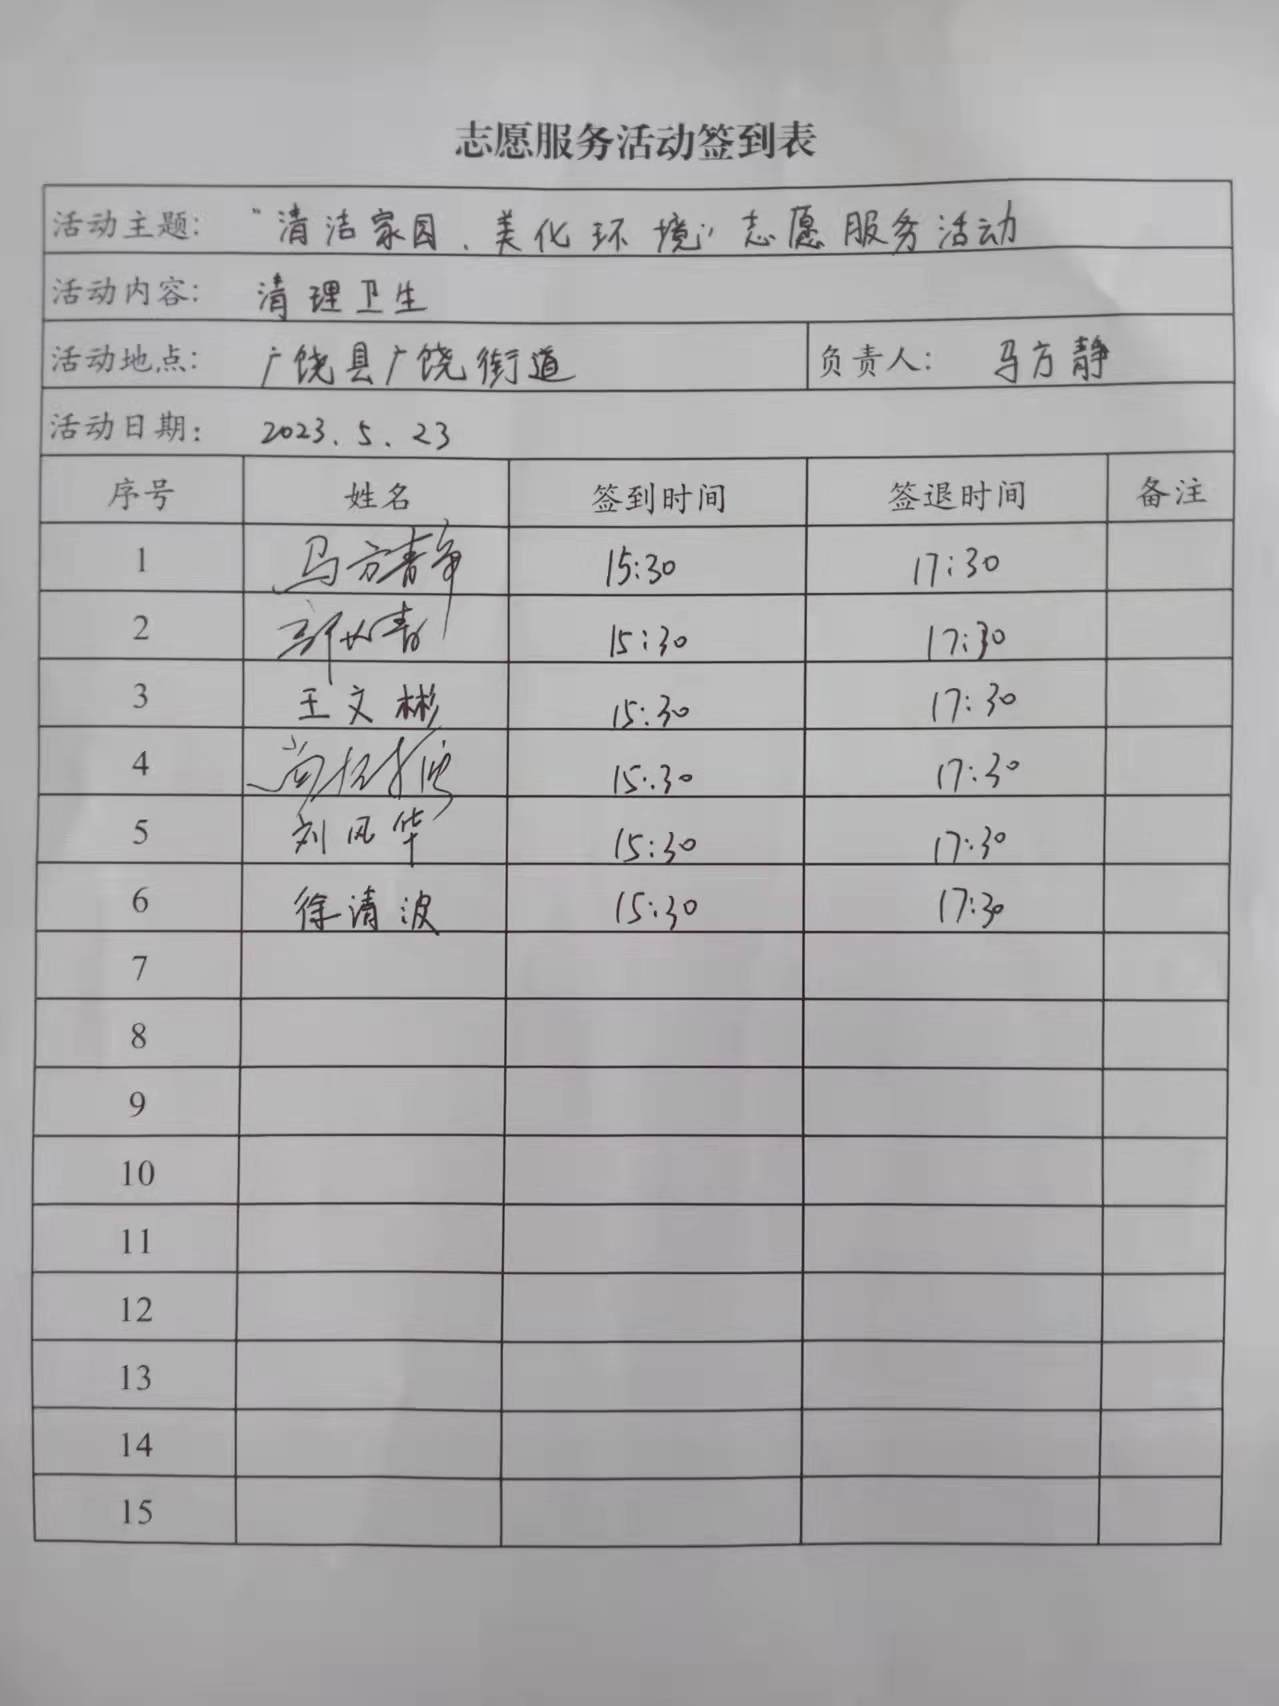 志愿服务活动签到表
活动主题： “清洁家园、美化环境”志愿服务活动
活动内容： 清理卫生
活动地点： 广饶县广饶街道 负责人： 马方静
活动日期： 2023.5.23
序号 姓名 签到时间 签退时间 备注
1 马方静 15:30 17:30
2 15:30 17:30
3 王文彬 15:30 17:30
4 15:30 17:30
5 刘风华 15:30 17:30
6 徐清波 15:30 17:30
7
8
9
10
11
12
13
14
15